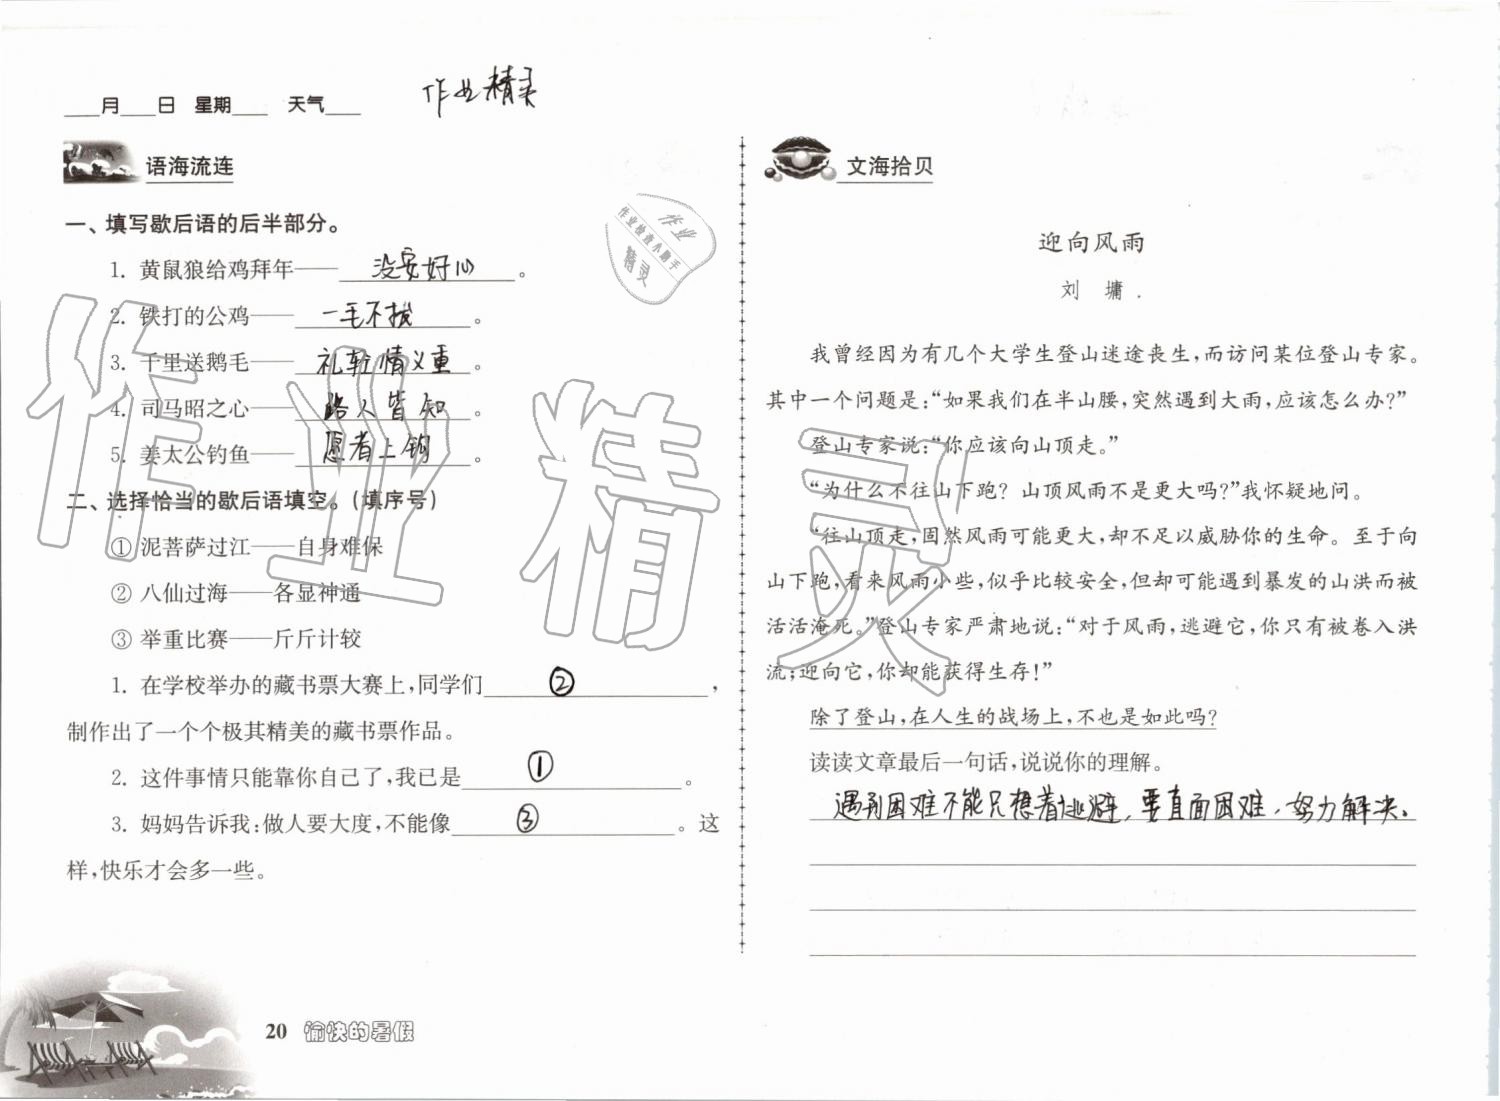 ___月___日 星期___ 天气___
作业精灵
语海流连
一、填写歇后语的后半部分。
1. 黄鼠狼给鸡拜年—— 没安好心 。
2. 铁打的公鸡—— 一毛不拔 。
3. 千里送鹅毛—— 礼轻情义重 。
4. 司马昭之心—— 路人皆知 。
5. 姜太公钓鱼—— 愿者上钩 。
二、选择恰当的歇后语填空。(填序号)
① 泥菩萨过江——自身难保
② 八仙过海——各显神通
③ 举重比赛——斤斤计较
1. 在学校举办的藏书票大赛上,同学们 ② ,
制作出了一个个极其精美的藏书票作品。
2. 这件事情只能靠你自己了,我已是 ① 。
3. 妈妈告诉我:做人要大度,不能像 ③ 。这
样,快乐才会多一些。
20 愉快的暑假
文海拾贝
迎向风雨
刘 墉
我曾经因为有几个大学生登山迷途丧生,而访问某位登山专家。
其中一个问题是:“如果我们在半山腰,突然遇到大雨,应该怎么办?”
登山专家说:“你应该向山顶走。”
“为什么不往山下跑? 山顶风雨不是更大吗?”我怀疑地问。
“往山顶走,固然风雨可能更大,却不足以威胁你的生命。至于向
山下跑,看来风雨小些,似乎比较安全,但却可能遇到暴发的山洪而被
活活淹死。”登山专家严肃地说:“对于风雨,逃避它,你只有被卷入洪
流;迎向它,你却能获得生存!”
除了登山,在人生的战场上,不也是如此吗?
读读文章最后一句话,说说你的理解。
遇到困难不能只想着逃避,要直面困难,努力解决。
作业
作业检查小助手
精灵
作业精灵